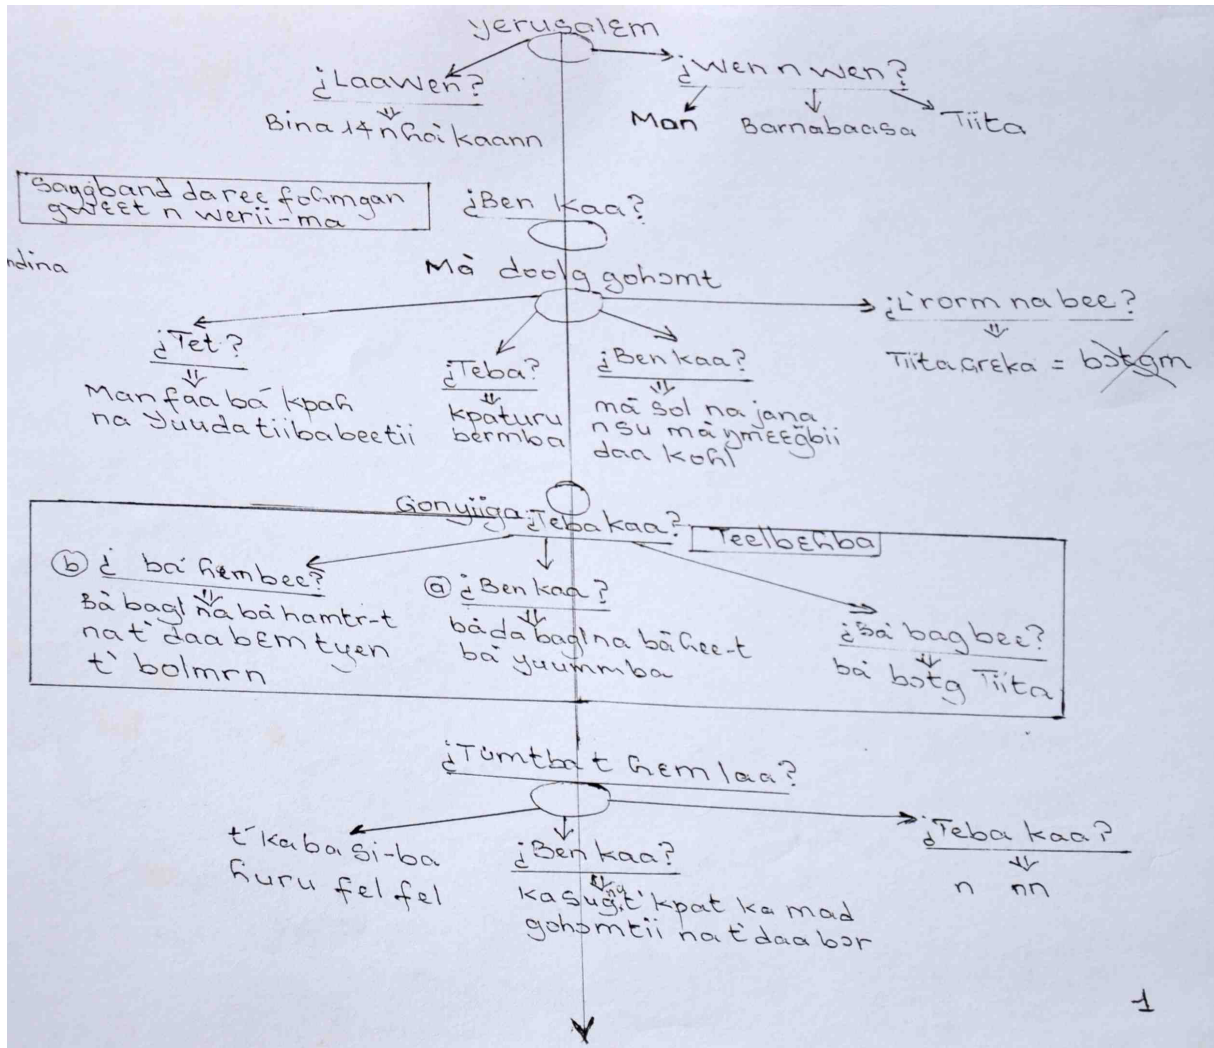 yerusalɛm
¿Laawen?
Bina 14 n ɦoi kaann
¿Wen n wen?
Man Barnabaasa Tiita
saggband daree foɦmgan
gweet n werii-ma
¿Ben kaa?
ndina
Mà doolg gohɔmt
¿Tet?
Man faa bá kpaɦ
na yuudatiiba beetii
¿Teba?
kpaturu
bermba
¿Ben kaa?
má sol na jana
nsu mà ymeegbii
daa koɦl
¿L'rorm na bee?
Tiita Grɛka = bɔtgm
Gonyiiga ¿Teba kaa?
Teelbɛɦba
b ¿ bá ɦembee?
Bà bagl na bá hamtr-t
na t' daa bɛm tyen
t' bolmrn
a ¿Ben kaa?
bà da bagl na bá ɦee-t
bà yuummba
¿Bà bag bee?
bà bɔtg Tiita
¿Tùmtba t ɦem laa?
t' ka ba si-ba
ɦuru fel fel
¿Ben kaa?
ka sug na t' kpat ka mad
gohɔmtii na t' daa bɔr
¿Teba kaa?
n nn
1